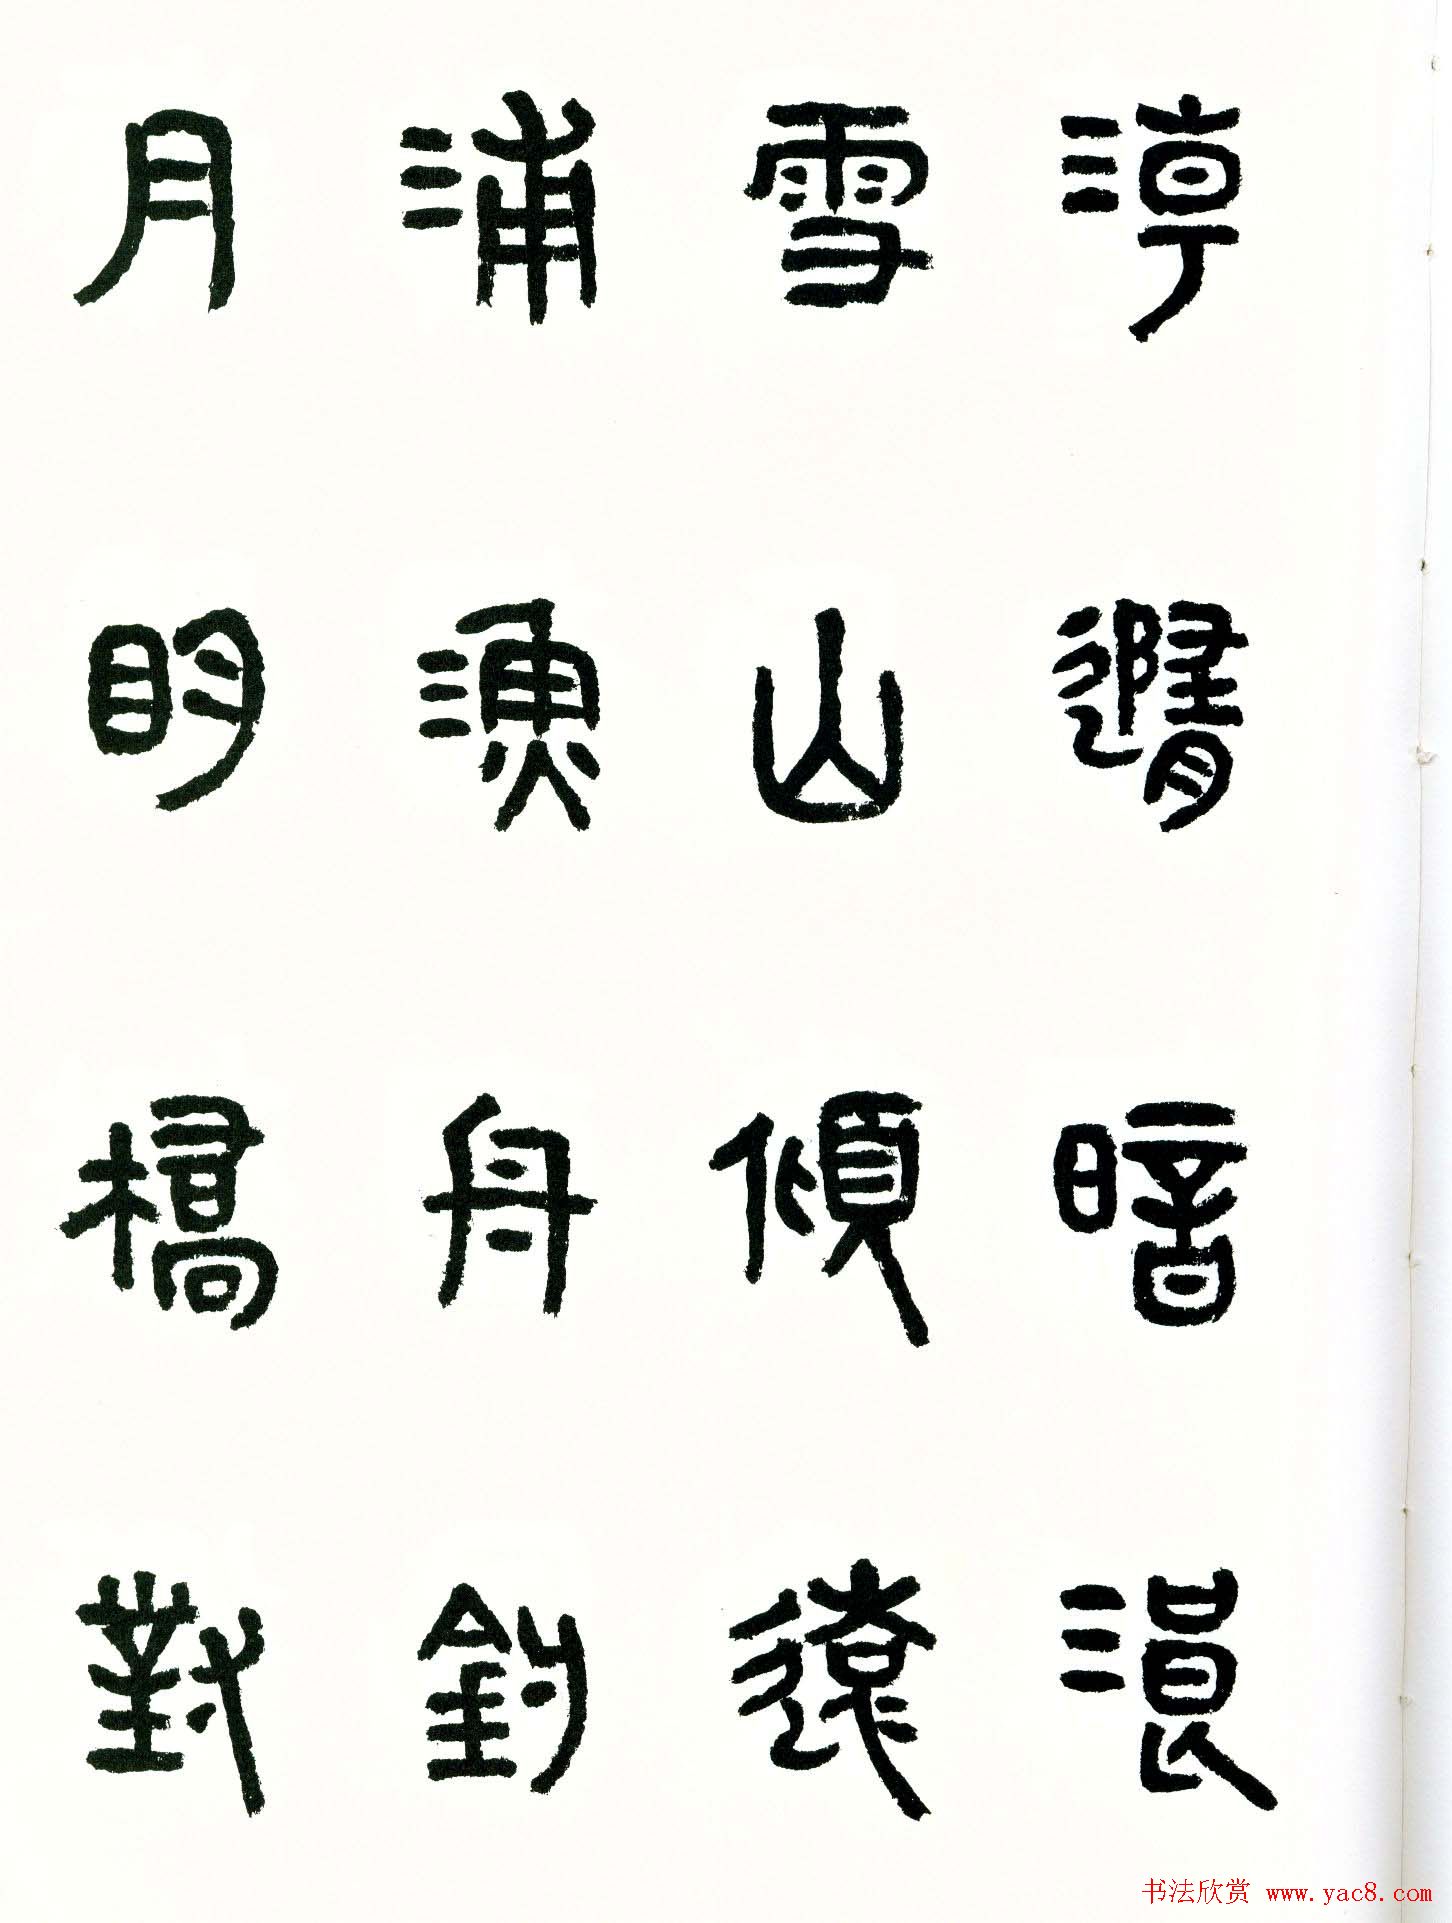 潮隨暗浪
雪山傾遠
浦漁舟釣
月明橋對
书法欣赏 www.yac8.com